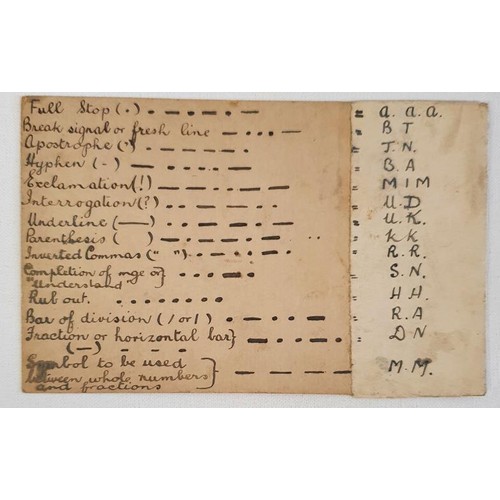 Full Stop (.) · — · — · — = a. a. a.
Break signal or fresh line — · · · — = B T
Apostrophe (') · — — — — · = J. N.
Hyphen (-) — · · · · — = B. A
Exclamation (!) — — · · — — = M I M
Interrogation (?) · · — — · · = U. D
Underline (——) · · — — · — = U. K.
Parenthesis ( ) — · — — · — = K K
Inverted Commas (" ") · — · · — · = R. R.
Completion of mge or } · · · — · = S. N.
"Understand"
Rub out. · · · · · · · · = H H.
Bar of division (/ or /) · — · · — = R. A
Fraction or horizontal bar } — · · — · = D N
(—)
Symbol to be used } — — — — = M. M.
between whole numbers
and fractions